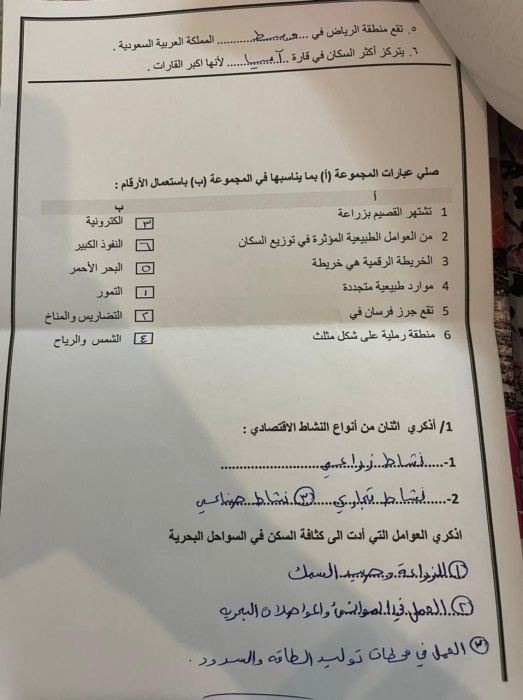 ٥. تقع منطقة الرياض في ...وسط........... المملكة العربية السعودية .
٦. يتركز أكثر السكان في قارة ..آسيا...... لأنها اكبر القارات .
صلي عبارات المجموعة (أ) بما يناسبها في المجموعة (ب) باستعمال الأرقام :
أ ب
1 تشتهر القصيم بزراعة ٣ الكترونية
2 من العوامل الطبيعية المؤثرة في توزيع السكان ٦ النفوذ الكبير
3 الخريطة الرقمية هي خريطة ٥ البحر الأحمر
4 موارد طبيعية متجددة ١ التمور
5 تقع جزر فرسان في ٢ التضاريس والمناخ
6 منطقة رملية على شكل مثلث ٤ الشمس والرياح
1/ أذكري اثنان من أنواع النشاط الاقتصادي :
1-.....نشاط زراعي.....................
2-.....نشاط تجاري....٣.نشاط صناعي
اذكري العوامل التي أدت الى كثافة السكن في السواحل البحرية
١ الزراعة وصيد السمك
٢ العمل في الموانئ والمواصلات البحريه
٣ العمل في محطات توليد الطاقه والسدود .